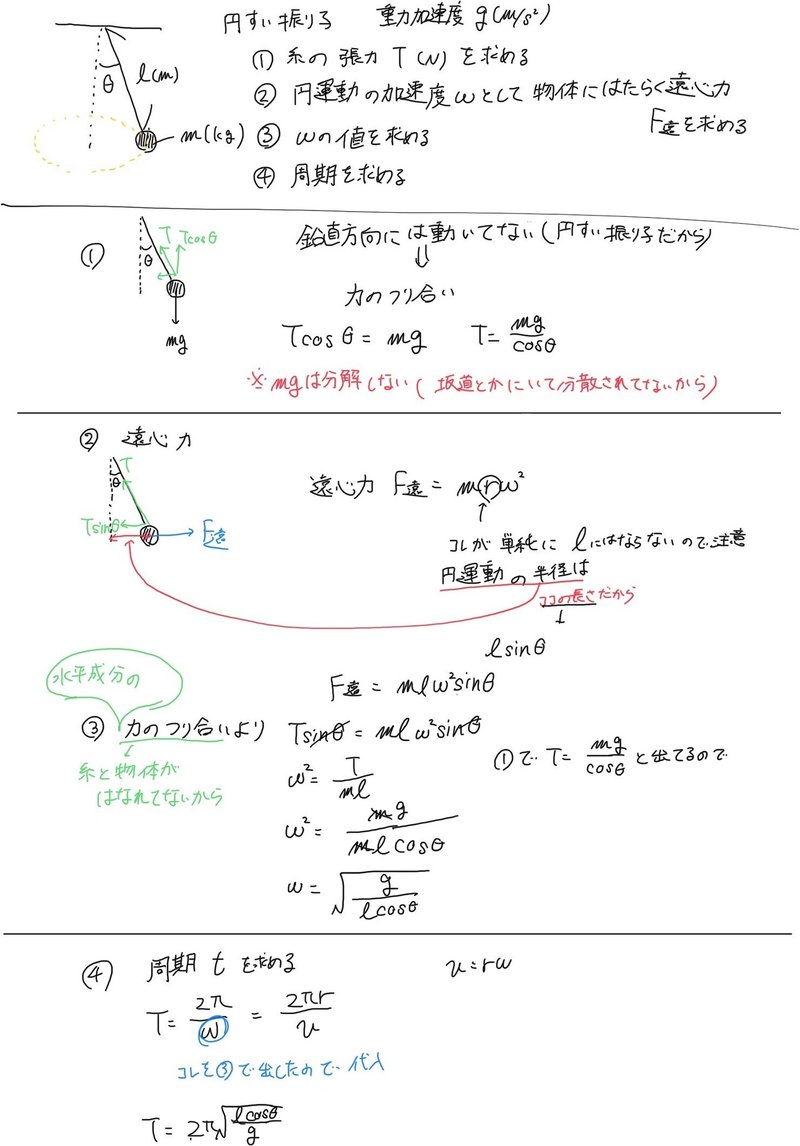 円すい振り子 重力加速度 g(m/s²)
θ
l(m)
m(kg)
① 糸の張力 T (N) を求める
② 円運動の加速度 ωとして 物体にはたらく遠心力
F遠を求める
③ ωの値を求める
④ 周期を求める
①
T
Tcosθ
θ
mg
鉛直方向には動いてない(円すい振り子だから)
⇓
力のつり合い
Tcosθ = mg T= mg/cosθ
※ mgは分解しない( 坂道とかにいて分散されてないから)
② 遠心力
θ
T
Tsinθ
F遠
遠心力 F遠 = mrω²
↑
コレが単純に lにはならないので注意
円運動の半径は
ココの長さだから
↓
lsinθ
F遠 = mlω²sinθ
水平成分の
③ 力のつり合いより Tsinθ = mlω²sinθ
糸と物体が
はなれてないから
ω² = T/ml
①で T= mg/cosθ と出てるので
ω² = mg/mlcosθ
ω = √(g/lcosθ)
④ 周期 t を求める
v=rω
T= 2π/ω = 2πr/v
コレを③で出したので代入
T= 2π√(lcosθ/g)